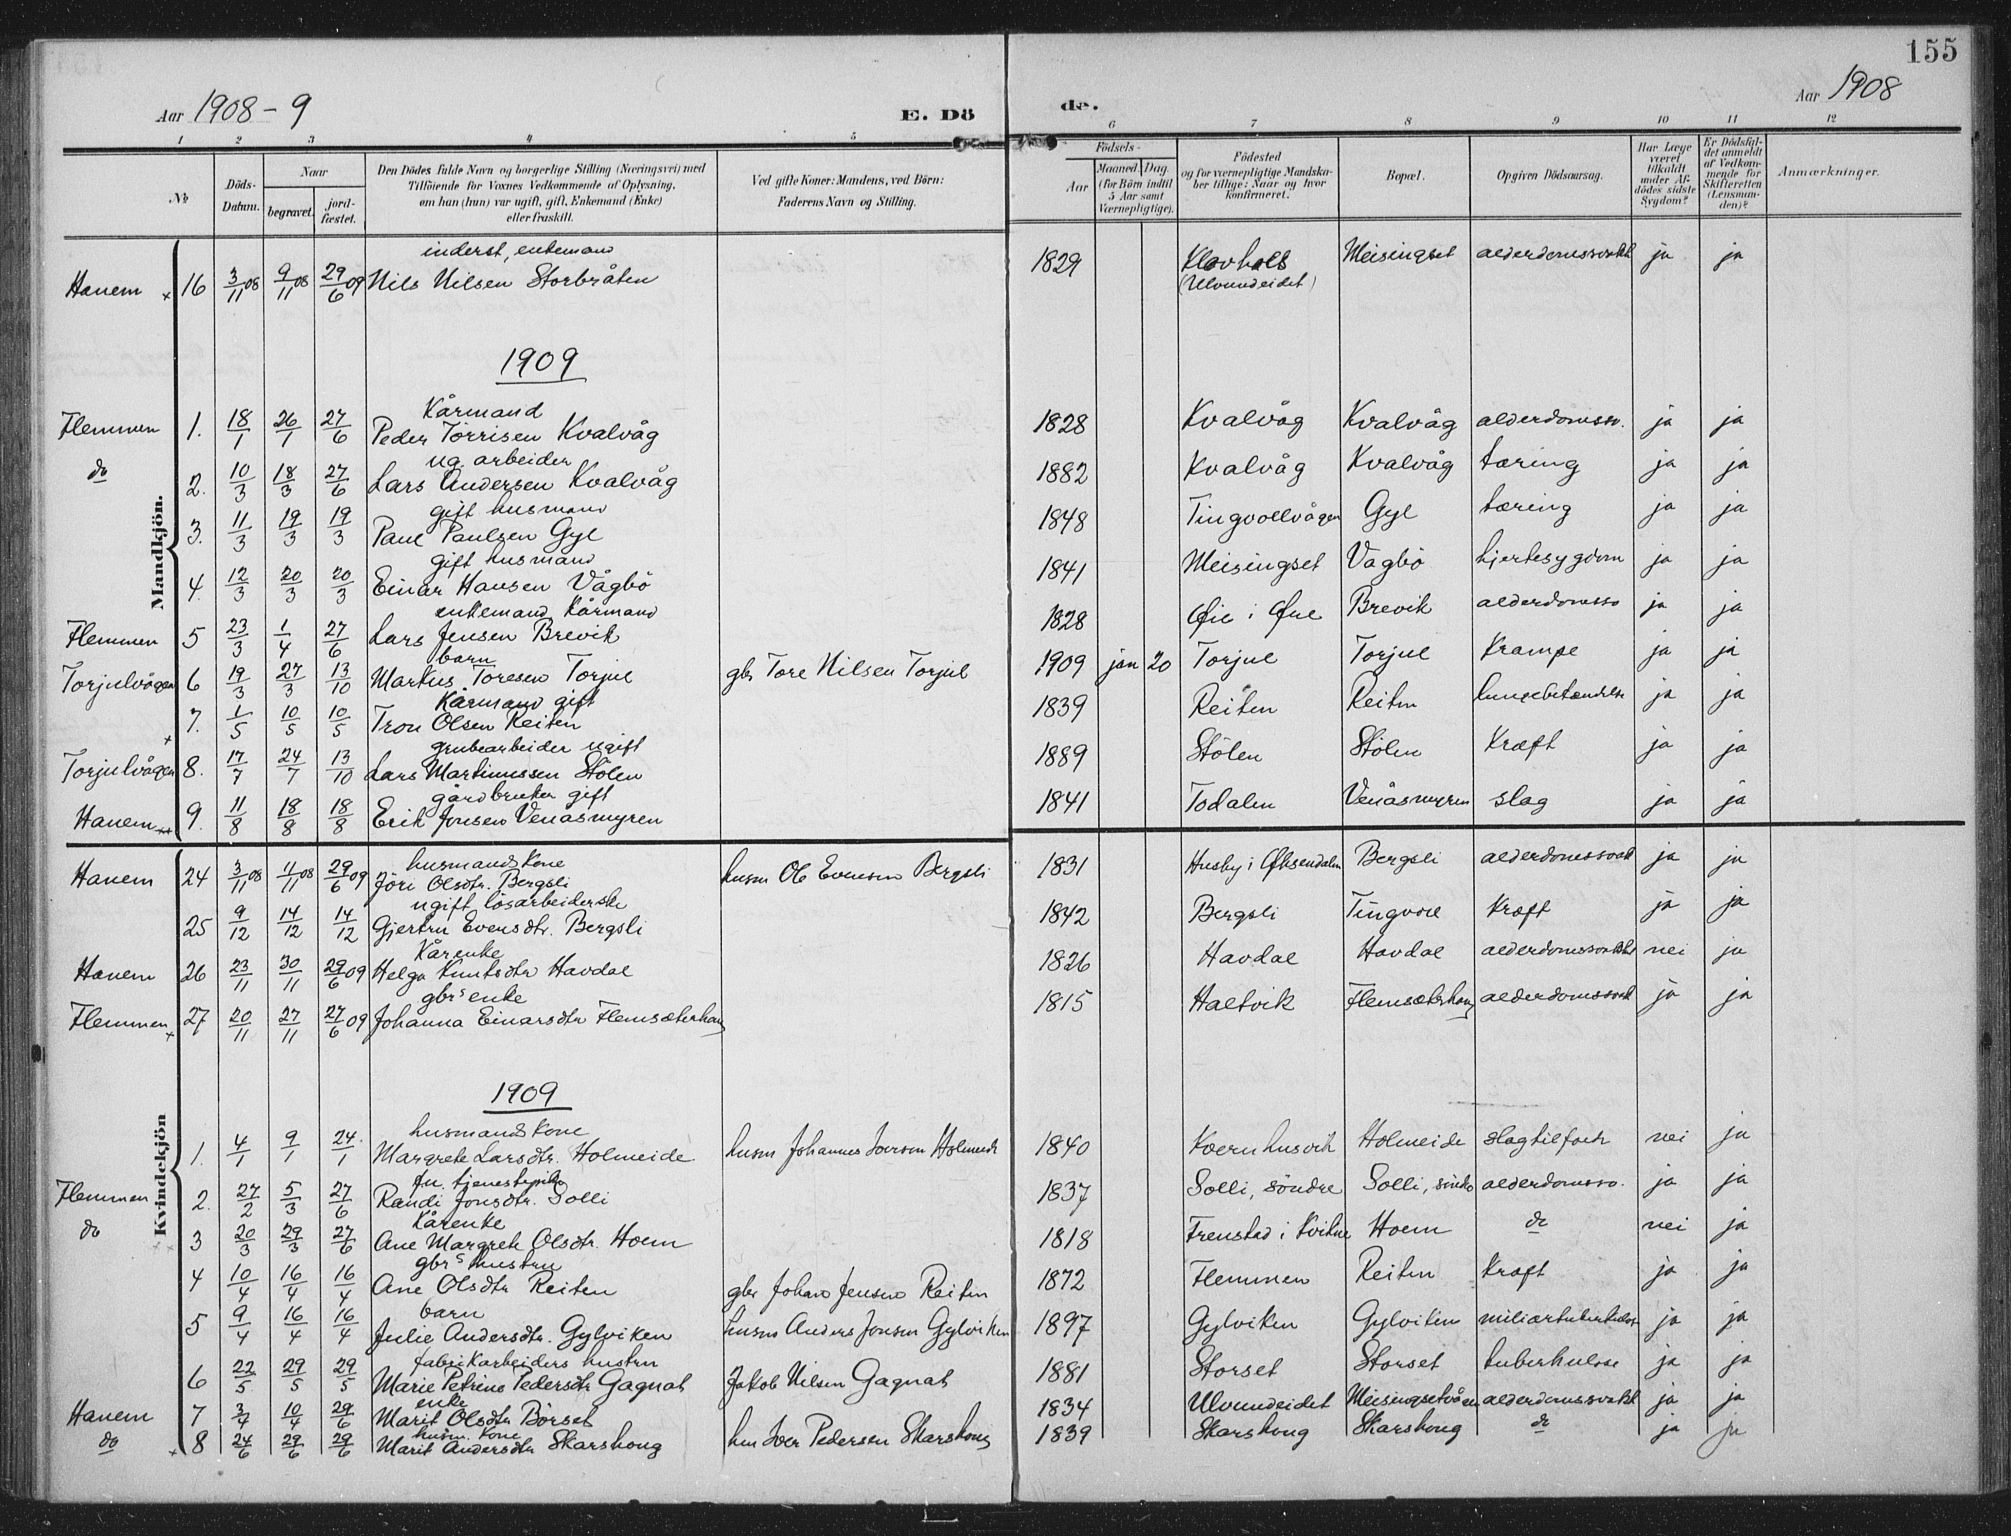 155
Aar 1908-9 E. Dö de. Aar 1908
1 2 3 4 5 6 7 8 9 10 11 12
No Döds-Datum. Naar begravet. jordfæstet. Den Dödes fulde Navn og borgerlige Stilling (Næringsvei) med Tilföiende for Voxnes Vedkommende af Oplysning, om han (hun) var ugift, gift, Enkemand (Enke) eller fraskilt. Ved gifte Koner: Mandens, ved Börn: Faderens Navn og Stilling. Födsels- Aar Maaned Dag. (for Börn indtil 5 Aar samt Værnepligtige). Födested og for værnepligtige Mandskaber tillige: Naar og hvor konfirmeret. Bopæl. Opgiven Dödsaarsag. Har Læge været tilkaldt under Afdödes sidste Sygdom? Er Dödsfaldet anmeldt af Vedkommende for Skifteretten (Lensmanden)? Anmærkninger.
Mandkjön.
inderst, enkemand
Hanem + 16 3/11 08 9/11 08 29/6 09 Nils Nilsen Storbråten 1829 (Ulvundeidet) Meisingset alderdomssvakh ja ja
1909
Kårmand
Flemmen 1. 18/1 26/1 27/6 Peder Törrisen Kvalvåg 1828 Kvalvåg Kvalvåg alderdomssv. ja ja
ug. arbeider
do 2. 10/3 18/3 27/6 Lars Andersen Kvalvåg 1882 Kvalvåg Kvalvåg tæring ja ja
gift husmand
3. 11/3 19/3 19/3 Paul Paulsen Gyl 1848 Tingvollvågen Gyl tæring ja ja
gift husmand
4. 12/3 20/3 20/3 Einar Hansen Vågbö 1841 Meisingset Vagbö hjertesygdom ja ja
enkemand kårmand
Flemmen 5 23/3 1/4 27/6 Lars Jensen Brevik 1828 Øie i Øre Brevik alderdomssv ja ja
barn
Torjulvågen 6 19/3 27/3 13/10 Markus Toresen Torjul gbr Tore Nilsen Torjul 1909 jan 20 Torjul Torjul Krampe ja ja
Kårmand gift
+ 7. 1/5 10/5 10/5 Tron Olsen Reiten 1839 Reiten Reiten lungebetændelse ja ja
grubearbeider ugift
Torjulvågen 8. 17/7 24/7 13/10 Lars Martinussen Stölen 1889 Stölen Stölen Kræft ja ja
gårdbruker gift
Hanem ++ 9. 11/8 18/8 18/8 Erik Jonsen Venåsmyren 1841 Todalen Venåsmyren slag ja ja
Kvindekjön
husmandskone
Hanem 24 3/11 08 11/11 08 29/6 09 Jöri Olsdtr. Bergsli husm Ole Evensen Bergsli 1831 Husby i Øksendalen Bergsli alderdomssvakh ja ja
ugift lösarbeiderske
25 9/12 14/12 14/12 Gjertru Evensdtr. Bergsli 1842 Bergsli Tingvoll Kræft ja ja
Kårenke
Hanem 26 23/11 30/11 29/6 09 Helga Knutsdtr Havdal 1826 Havdal Havdal alderdomssvakhet nei ja
gbrs enke
Flemmen + 27 20/11 27/11 27/6 09 Johanna Einarsdtr Flemsæterhaug 1815 Haltvik Flemsæterhaug alderdomssvakh ja ja
1909
husmandskone
1. 4/1 9/1 24/1 Margrete Larsdtr. Holmeide husm Johannes Iversen Holmeide 1840 Kvernhusvik Holmeide slagtilfælde nei ja
fv. tjenestepike
Flemmen 2. 27/2 5/3 27/6 Randi Jonsdtr. Solli 1837 Solli, söndre Solli, söndre alderdomssv. ja ja
Kårenke
do 3 20/3 29/3 27/6 Ane Margrete Olsdtr. Hoem 1818 Frenstad i Kvikne Hoem do nei ja
gbrs hustru
4 10/4 16/4 16/4 Ane Olsdtr Reiten gbr Johan Jensen Reiten 1872 Flemmen Reiten Kræft ja ja
barn
5 9/4 16/4 16/4 Julie Andersdtr. Gylviken husm Anders Jonsen Gylviken 1897 Gylviken Gylviken miliærtuberkulose ja ja
fabrikarbeiders hustru
6 22/5 29/5 29/5 Marie Petrine Pedersdtr Gagnat Jakob Nilsen Gagnat 1881 Storset Storset tuberkulose ja ja
enke
Hanem 7 3/4 10/4 29/6 Marit Olsdtr Börset 1834 Ulvundeidet Meisingsetvågen alderdomssvakh ja ja
husm. kone
do + 8 24/6 29/6 29/6 Marit Andersdtr Skarshaug hm Iver Pedersen Skarshaug 1839 Skarshaug Skarshaug do ja ja